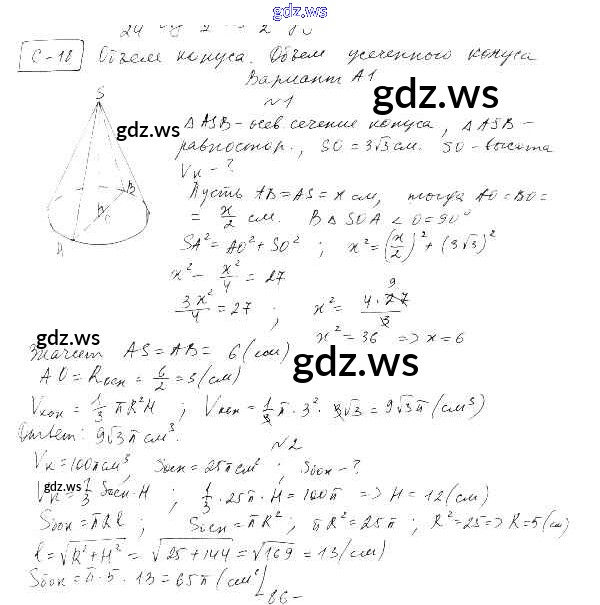 gdz.ws
С-18 Объем конуса. Объем усеченного конуса
Вариант А1
gdz.ws
№1
S
gdz.ws
△ASB - осев. сечение конуса, △ASB -
равностор., SO = 3√3 см. SO - высота
Vк - ?
Пусть AB = AS = x см, тогда AO = BO =
= x/2 см. В △SOA ∠O = 90°
B
O
A
SA² = AO² + SO² ; x² = (x/2)² + (3√3)²
x² - x²/4 = 27
3x²/4 = 27 ; x² = 4·27/3 9
x² = 36 => x = 6
Значит AS = AB = 6 (см)
gdz.ws
AO = Rосн = 6/2 = 3 (см)
Vкон = 1/3 πR²H ; Vкон = 1/3 π · 3² · 3√3 = 9√3π (см³)
Ответ: 9√3π см³.
№2
Vк = 100π см³, Sосн = 25π см² ; Sбок - ?
gdz.ws
Vк = 1/3 Sосн · H ; 1/3 · 25π · H = 100π => H = 12 (см)
Sбок = πRl ; Sосн = πR² ; πR² = 25π ; R² = 25 => R = 5 (см)
l = √R² + H² = √25 + 144 = √169 = 13 (см)
Sбок = π · 5 · 13 = 65π (см²)
- 86 -